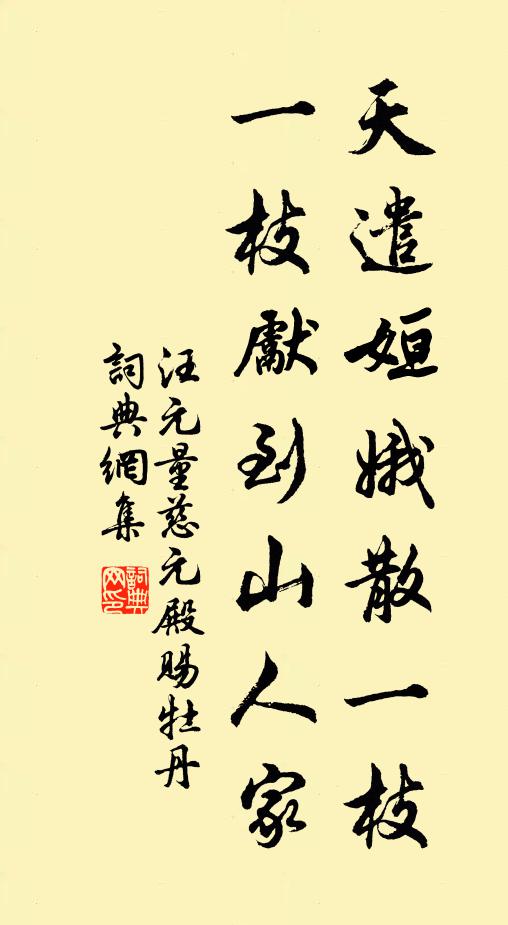 天遣姮娥散一枝
一枝獻到山人家
汪元量慈元殿賜牡丹
詞典網集
詞典網印